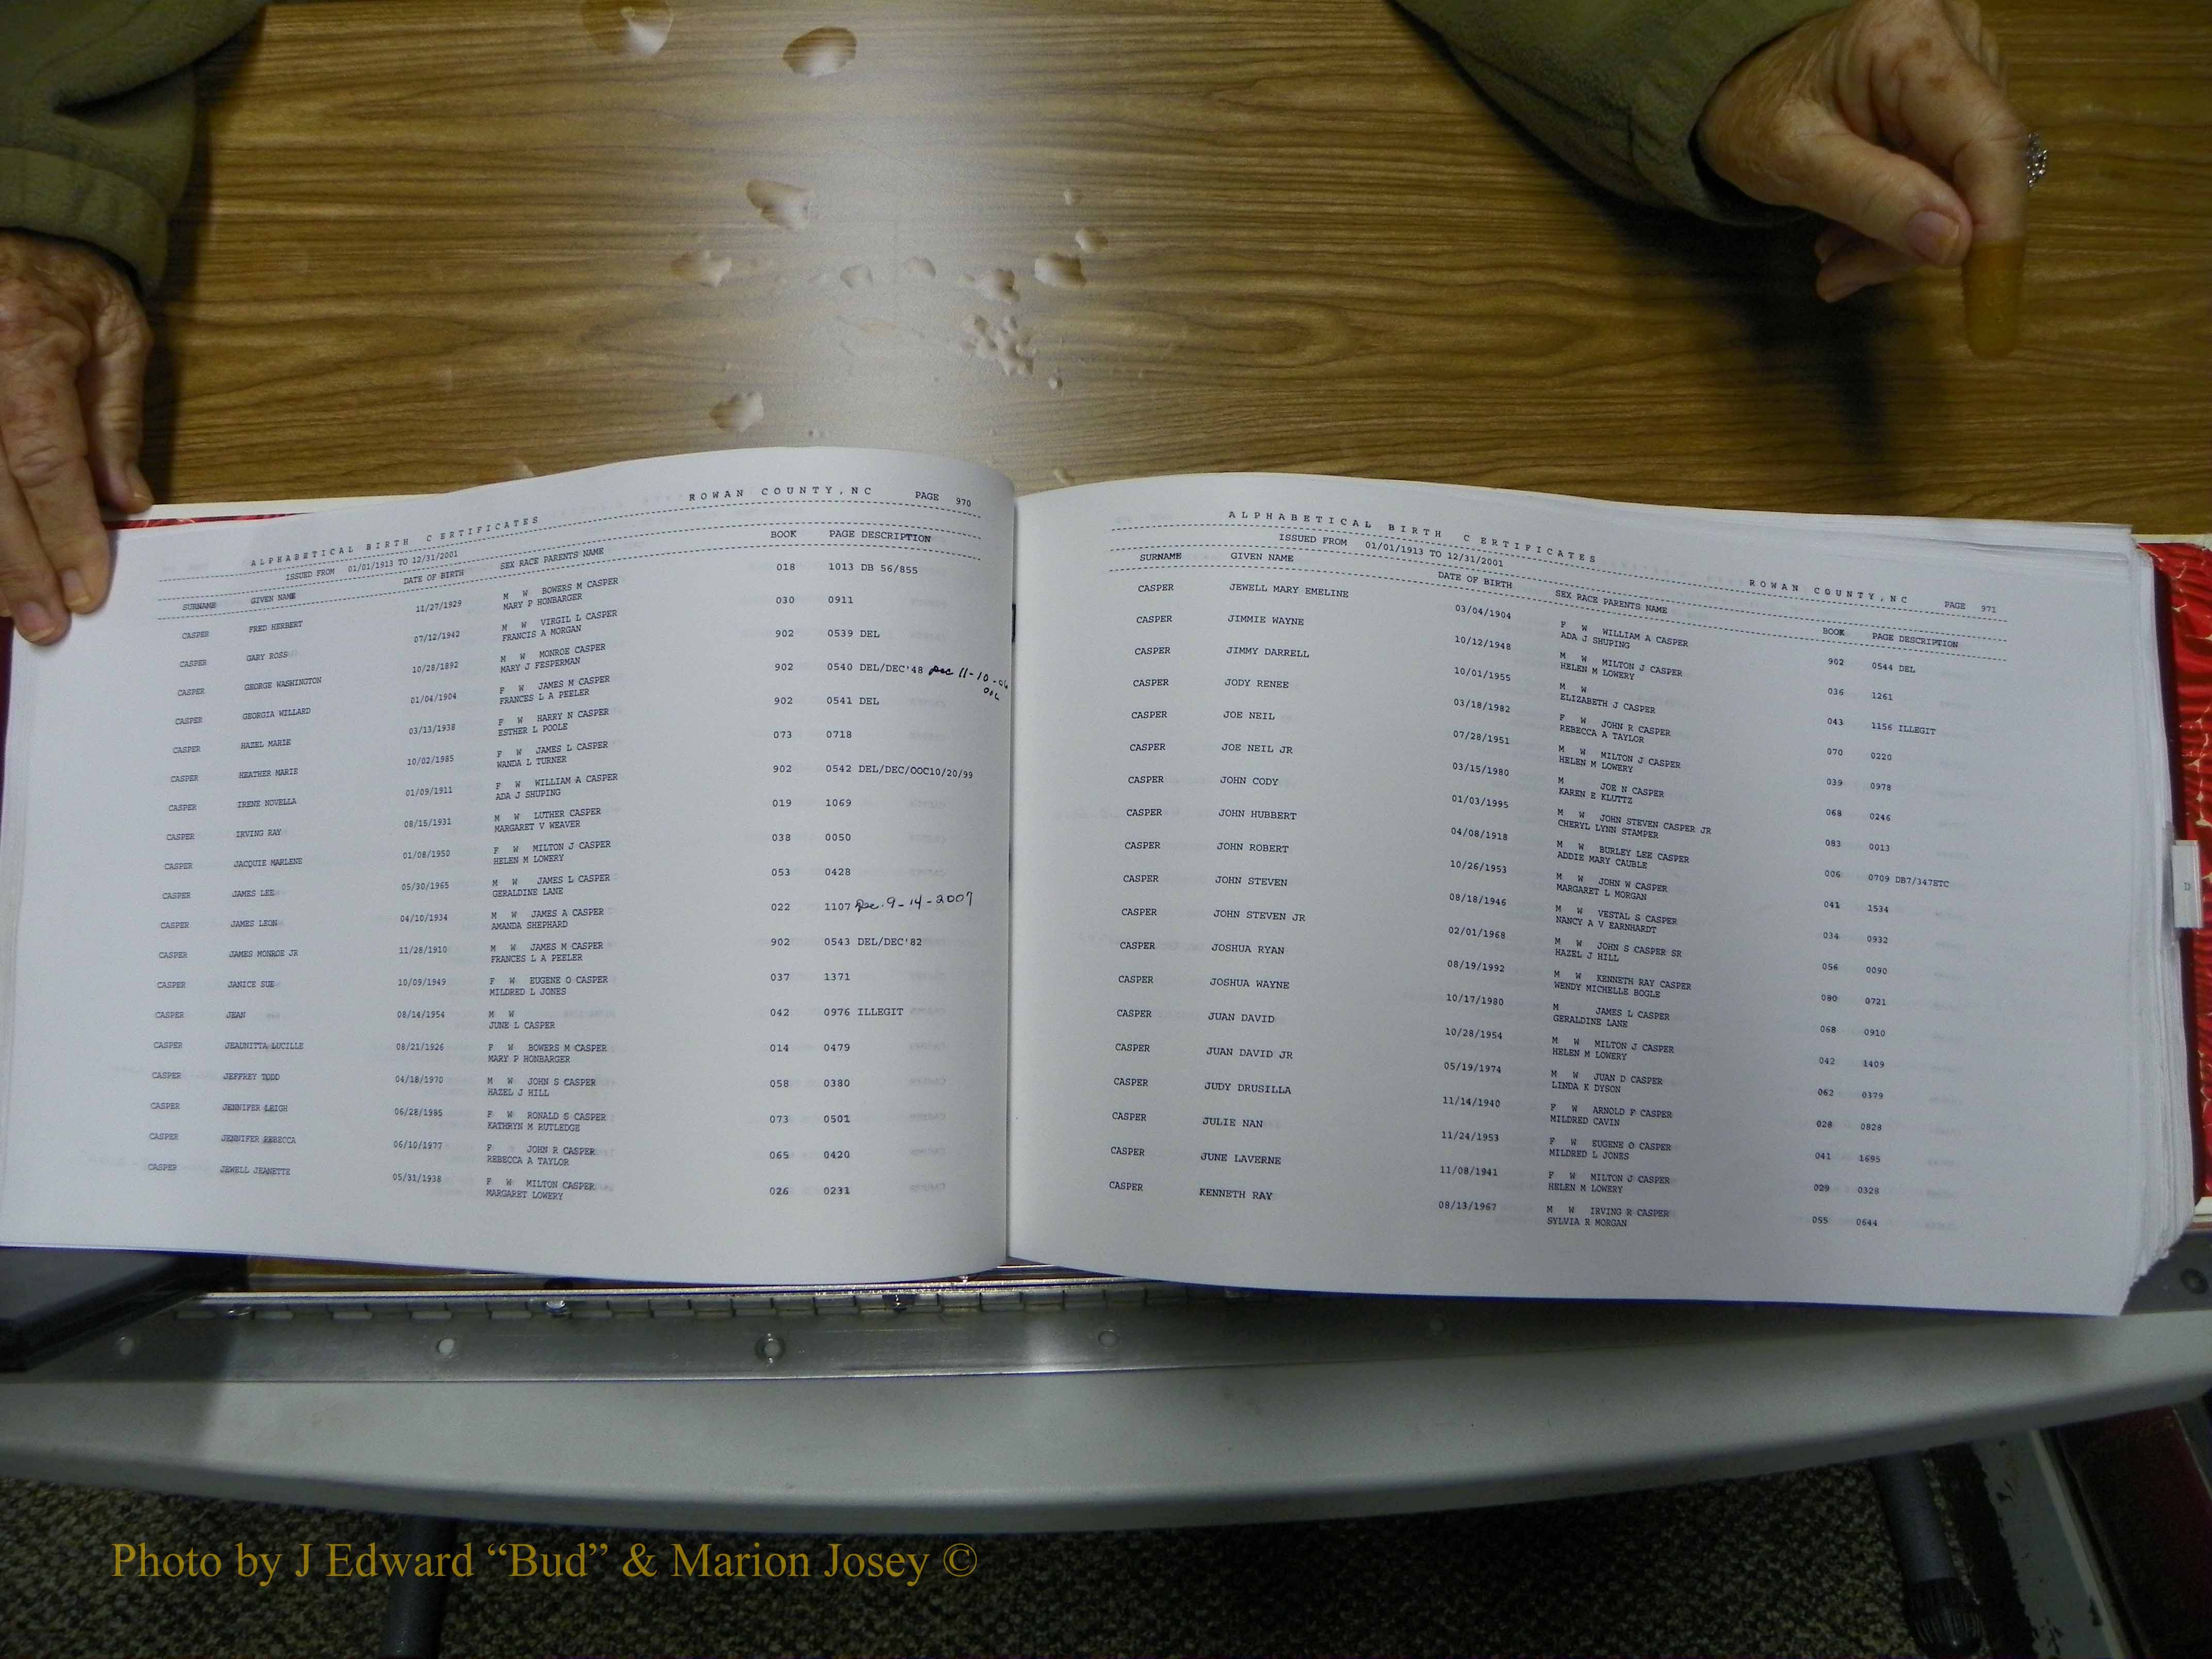 ALPHABETICAL BIRTH CERTIFICATES ROWAN COUNTY, NC PAGE 970
ISSUED FROM 01/01/1913 TO 12/31/2001
SURNAME GIVEN NAME DATE OF BIRTH SEX RACE PARENTS NAME BOOK PAGE DESCRIPTION
CASPER FRED HERBERT 11/27/1929 M W BOWERS M CASPER 018 1013 DB 56/855
MARY P HONBARGER
CASPER GARY ROSS 07/12/1942 M W VIRGIL L CASPER 030 0911
FRANCIS A MORGAN
CASPER GEORGE WASHINGTON 10/28/1892 M W MONROE CASPER 902 0539 DEL
MARY J FESPERMAN
CASPER GEORGIA WILLARD 01/04/1904 F W JAMES M CASPER 902 0540 DEL/DEC'48 Dec 11-10-06
FRANCES L A PEELER
CASPER HAZEL MARIE 03/13/1938 F W HARRY N CASPER 902 0541 DEL
ESTHER L POOLE
CASPER HEATHER MARIE 10/02/1985 F W JAMES L CASPER 073 0718
WANDA L TURNER
CASPER IRENE NOVELLA 01/09/1911 F W WILLIAM A CASPER 902 0542 DEL/DEC/OOC10/20/99
ADA J SHUPING
CASPER IRVING RAY 08/15/1931 M W LUTHER CASPER 019 1069
MARGARET V WEAVER
CASPER JACQUIE MARLENE 01/08/1950 F W MILTON J CASPER 038 0050
HELEN M LOWERY
CASPER JAMES LEE 05/30/1965 M W JAMES L CASPER 053 0428
GERALDINE LANE
CASPER JAMES LEON 04/10/1934 M W JAMES A CASPER 022 1107 Dec. 9-14-2007
AMANDA SHEPHARD
CASPER JAMES MONROE JR 11/28/1910 M W JAMES M CASPER 902 0543 DEL/DEC'82
FRANCES L A PEELER
CASPER JANICE SUE 10/09/1949 F W EUGENE O CASPER 037 1371
MILDRED L JONES
CASPER JEAN 08/14/1954 M W 042 0976 ILLEGIT
JUNE L CASPER
CASPER JEAUNITTA LUCILLE 08/21/1926 F W BOWERS M CASPER 014 0479
MARY P HONBARGER
CASPER JEFFREY TODD 04/18/1970 M W JOHN S CASPER 058 0380
HAZEL J HILL
CASPER JENNIFER LEIGH 06/28/1985 F W RONALD S CASPER 073 0501
KATHRYN M RUTLEDGE
CASPER JENNIFER REBECCA 06/10/1977 F JOHN R CASPER 065 0420
REBECCA A TAYLOR
CASPER JEWELL JEANETTE 05/31/1938 F W MILTON CASPER 026 0231
MARGARET LOWERY
ALPHABETICAL BIRTH CERTIFICATES ROWAN COUNTY, NC PAGE 971
ISSUED FROM 01/01/1913 TO 12/31/2001
SURNAME GIVEN NAME DATE OF BIRTH SEX RACE PARENTS NAME BOOK PAGE DESCRIPTION
CASPER JEWELL MARY EMELINE 03/04/1904 F W WILLIAM A CASPER 902 0544 DEL
ADA J SHUPING
CASPER JIMMIE WAYNE 10/12/1948 M W MILTON J CASPER 036 1261
HELEN M LOWERY
CASPER JIMMY DARRELL 10/01/1955 M W 043 1156 ILLEGIT
ELIZABETH J CASPER
CASPER JODY RENEE 03/18/1982 F W JOHN R CASPER 070 0220
REBECCA A TAYLOR
CASPER JOE NEIL 07/28/1951 M W MILTON J CASPER 039 0978
HELEN M LOWERY
CASPER JOE NEIL JR 03/15/1980 M JOE N CASPER 068 0246
KAREN E KLUTTZ
CASPER JOHN CODY 01/03/1995 M W JOHN STEVEN CASPER JR 083 0013
CHERYL LYNN STAMPER
CASPER JOHN HUBBERT 04/08/1918 M W BURLEY LEE CASPER 006 0709 DB7/347ETC
ADDIE MARY CAUBLE
CASPER JOHN ROBERT 10/26/1953 M W JOHN W CASPER 041 1534
MARGARET L MORGAN
CASPER JOHN STEVEN 08/18/1946 M W VESTAL S CASPER 034 0932
NANCY A V EARNHARDT
CASPER JOHN STEVEN JR 02/01/1968 M W JOHN S CASPER SR 056 0090
HAZEL J HILL
CASPER JOSHUA RYAN 08/19/1992 M W KENNETH RAY CASPER 080 0721
WENDY MICHELLE BOGLE
CASPER JOSHUA WAYNE 10/17/1980 M JAMES L CASPER 068 0910
GERALDINE LANE
CASPER JUAN DAVID 10/28/1954 M W MILTON J CASPER 042 1409
HELEN M LOWERY
CASPER JUAN DAVID JR 05/19/1974 M W JUAN D CASPER 062 0379
LINDA K DYSON
CASPER JUDY DRUSILLA 11/14/1940 F W ARNOLD F CASPER 028 0828
MILDRED CAVIN
CASPER JULIE NAN 11/24/1953 F W EUGENE O CASPER 041 1695
MILDRED L JONES
CASPER JUNE LAVERNE 11/08/1941 F W MILTON J CASPER 029 0328
HELEN M LOWERY
CASPER KENNETH RAY 08/13/1967 M W IRVING R CASPER 055 0644
SYLVIA R MORGAN
D
Photo by J Edward “Bud” & Marion Josey ©